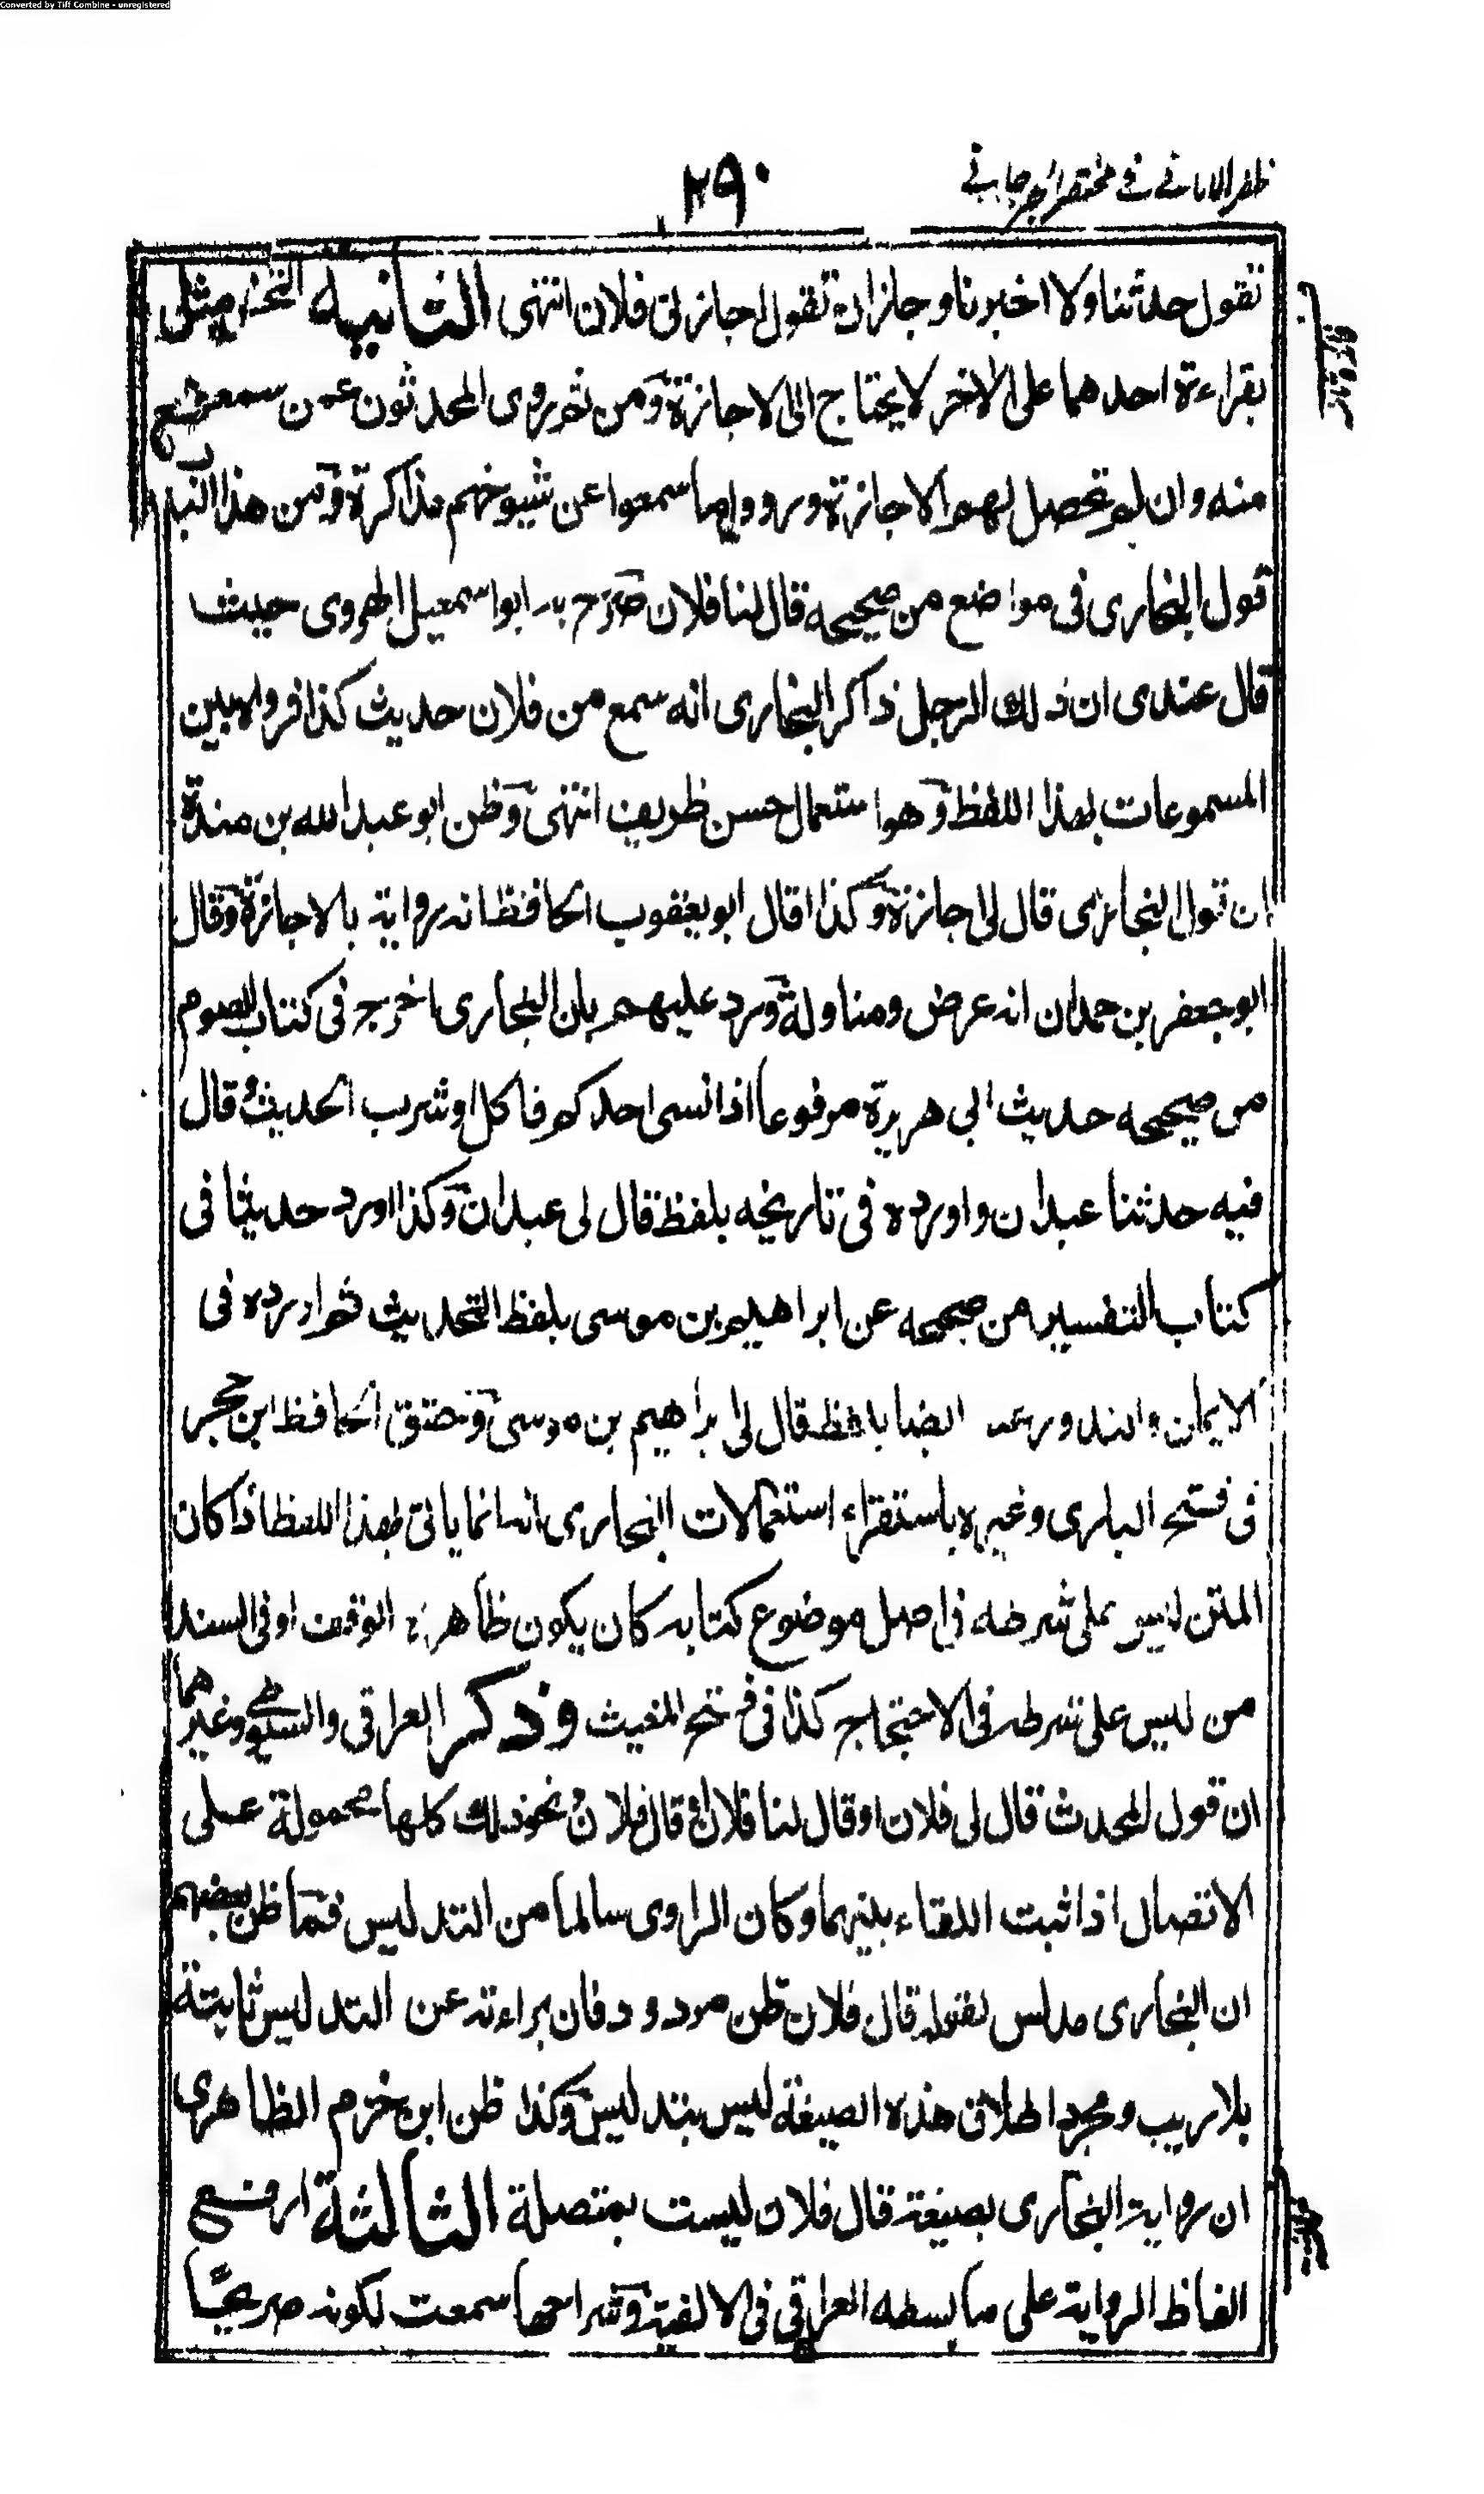 Converted by Tiff Combine - unregistered
ظفر الامانى فى مختصر الجرجانى
٢٩٠
تقول حدثنا ولا اخبرنا وجاز ان تقول اجاز لى فلان انتهى الثانية
بقراءة احدهما على الاخر لا يحتاج الى الاجازة ومن ثم روى المحدثون عمن سمع
منه وان لم تحصل لهم الاجازة ورووا ما سمعوا عن شيوخهم مذاكرة ومن هذا
قول البخارى فى مواضع من صحيحه قال لنا فلان صرح به ابو اسمعيل الهروى حيث
قال عندى ان ذلك الرجل ذاكر البخارى انه سمع من فلان حديث كذا فرواه بين
المسموعات بهذا اللفظ وهو استعمال حسن ظريف انتهى وظن ابو عبد الله بن مندة
ان قول البخارى قال لى اجازة وكذا قال ابو يعقوب الحافظ انه رواية بالاجازة وقال
ابو جعفر بن حمدان انه عرض ومناولة ورد عليهم بان البخارى اخرج فى كتاب الصوم
من صحيحه حديث ابى هريرة مرفوعا اذا نسى احدكم فاكل او شرب الحديث قال
فيه حدثنا عبدان واورده فى تاريخه بلفظ قال لى عبدان وكذا اورد حديثا فى
كتاب التفسير من صحيحه عن ابراهيم بن موسى بلفظ التحديث ثم اورده فى
الايمان والنذور ايضا بلفظ قال لى ابراهيم بن موسى وحقق الحافظ ابن حجر
فى فتح البارى وغيره باستقراء استعمالات البخارى انه انما ياتى بهذا اللفظ اذا كان
المتن ليس على شرطه فى اصل موضوع كتابه كان يكون ظاهره الوقف او فى السند
من ليس على شرطه فى الاحتجاج كذا فى فتح المغيث وذكر العراقى والسخاوى وغيرهما
ان قول المحدث قال لى فلان او قال لنا فلان او قال فلان نحو ذلك كلها محمولة على
الاتصال اذا ثبت اللقاء بينهما وكان الراوى سالما من التدليس فما ظن بعضهم
ان البخارى مدلس لقوله قال فلان ظن مردود فان براءته عن التدليس ثابتة
بلا ريب ومجرد اطلاق هذه الصيغة ليس بتدليس وكذا ظن ابن حزم الظاهرى
ان رواية البخارى بصيغة قال فلان ليست بمتصلة الثالثة ارفع
الفاظ الرواية على ما بسطه العراقى فى الالفية وشراحها سمعت لكونه صريحا